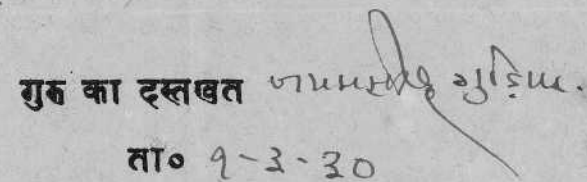 गुरु का दस्तखत गुड़िया.
ता० १-३-३०